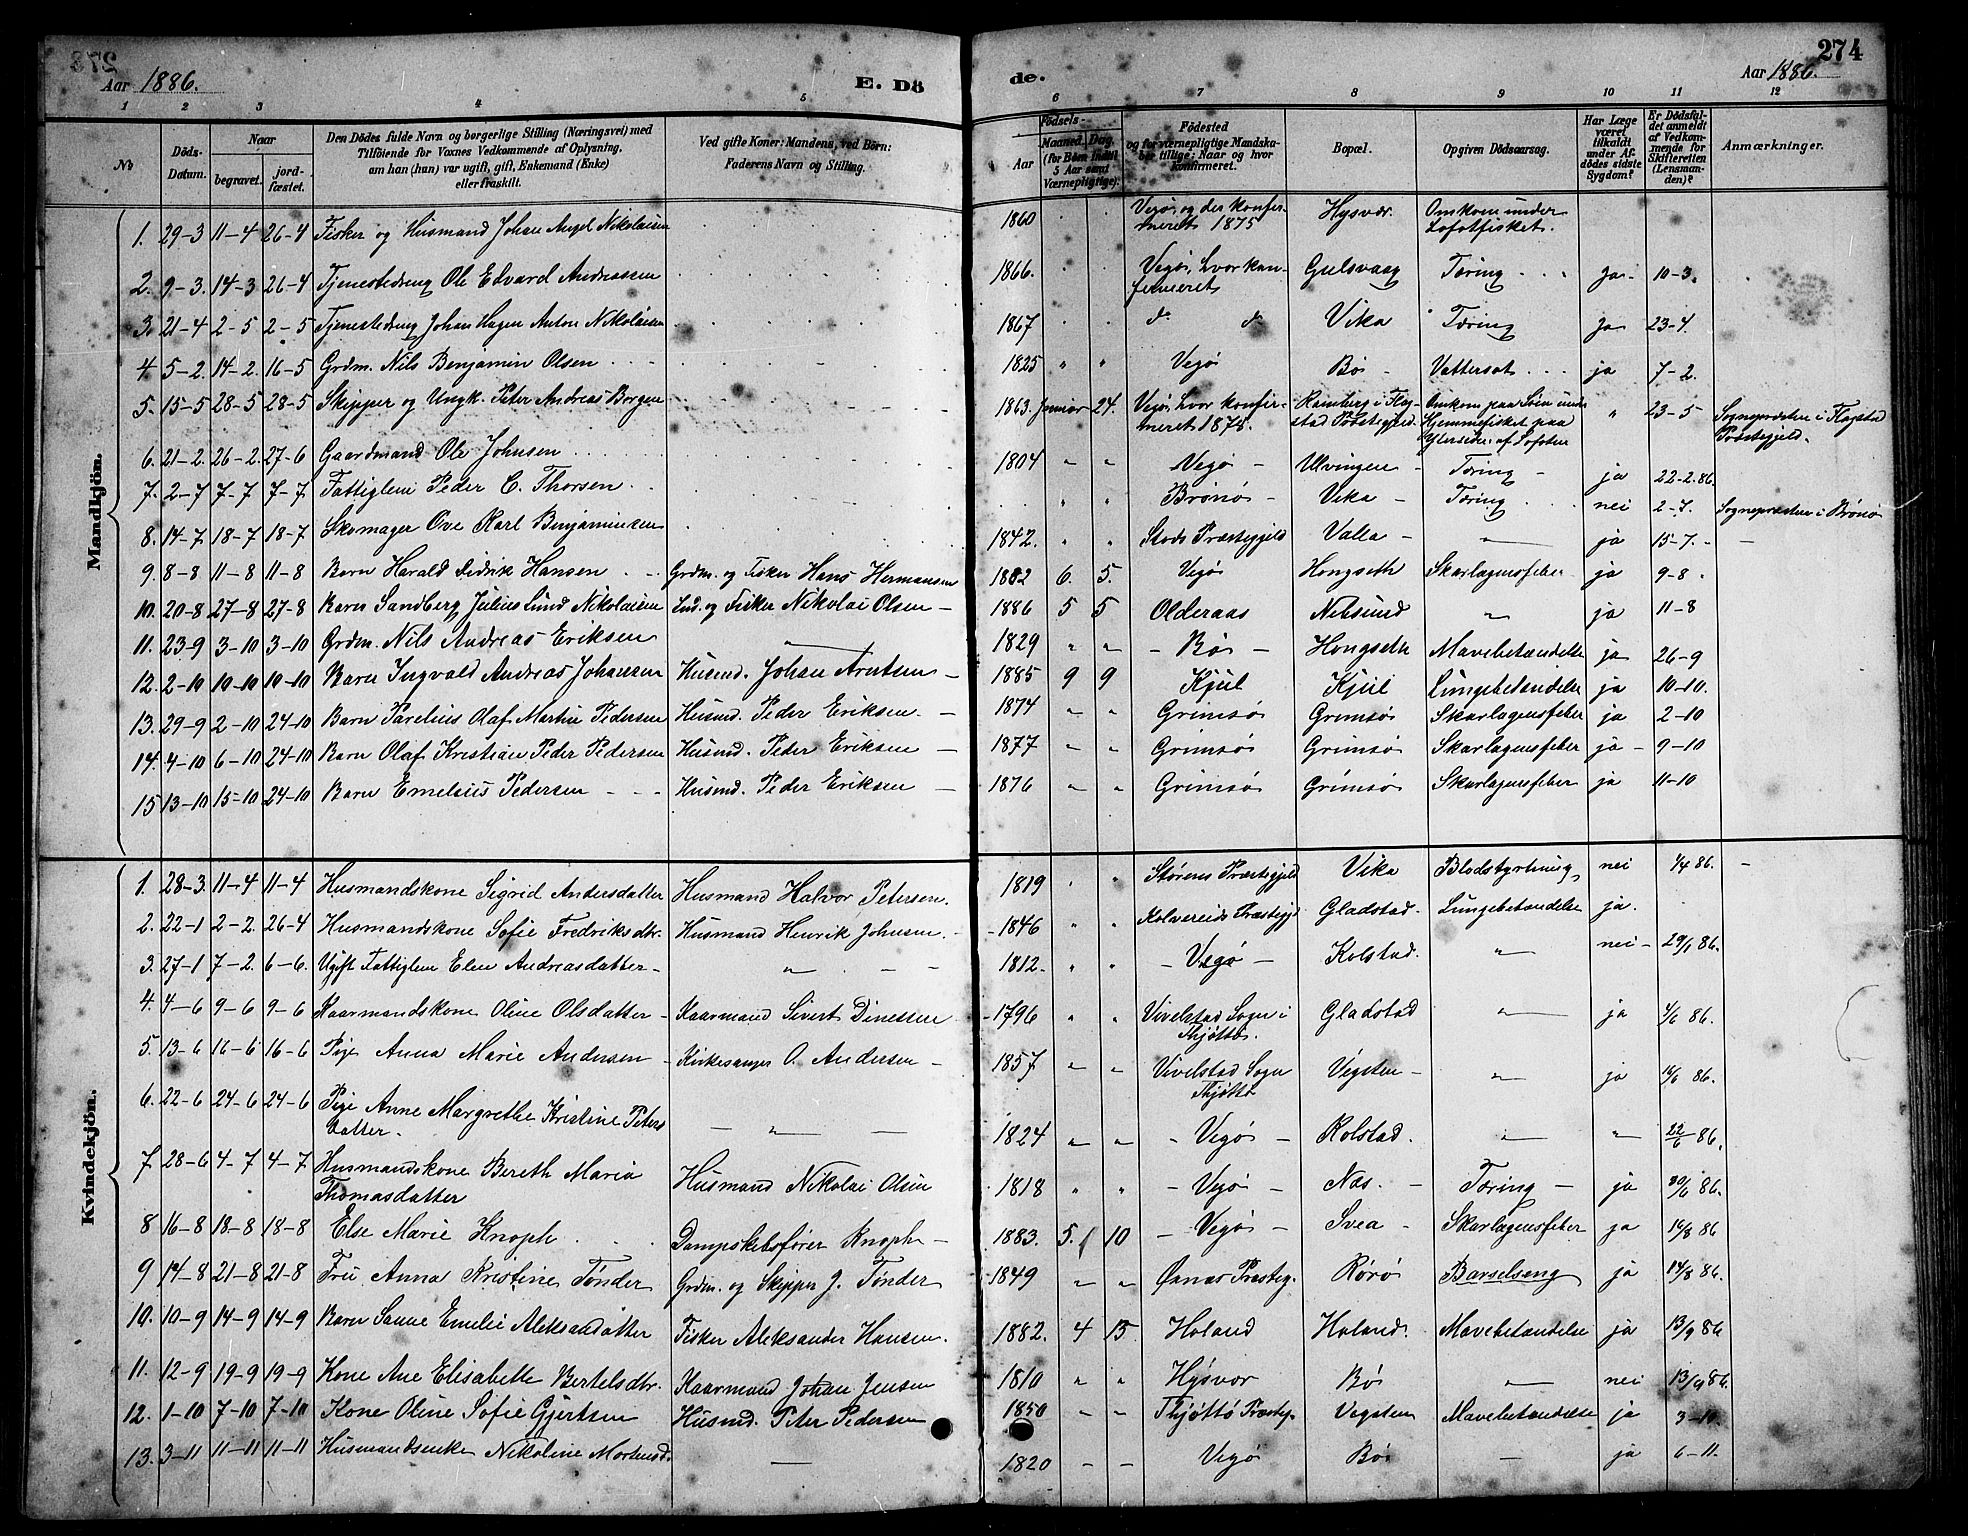 273
274
Aar 1886.
E. Dö
de.
Aar 1886.
1 2 3 4 5 6 7 8 9 10 11 12
№
Döds-Datum.
Naar
begravet.
jord-fæstet.
Den Dödes fulde Navn og borgerlige Stilling (Næringsvei) med
Tilföiende for Voxnes Vedkommende af Oplysning,
om han (hun) var ugift, gift, Enkemand (Enke)
eller fraskilt.
Ved gifte Koner: Mandens, ved Börn:
Faderens Navn og Stilling.
Födsels-
Aar
Maaned, Dag,
(for Börn indtil
5 Aar samt
Værnepligtige).
Födested
og for værnepligtige Mandska-
ber tillige: Naar og hvor
konfirmeret.
Bopæl.
Opgiven Dödsaarsag.
Har Læge
været
tilkaldt
under Af-
dödes sidste
Sygdom?
Er Dödsfal-
det anmeldt
af Vedkom-
mende for
Skifteretten
(Lensman-
den)?
Anmærkninger.
Mandkjön.
1. 29-3 11-4 26-4 Fisker og Husmand Johan Angel Nikolaisen 1860 Vegø, og der konfir-
meret 1875 Hysvær. Omkom under
Lofotfisket.
2. 9-3. 14-3 26-4 Tjenestedreng Ole Edvard Andreassen 1866. Vegø, hvor kon-
firmeret Gulsvaag Tæring ja 10-3.
3. 21-4 2-5 2-5 Tjenestedreng Johan Hagen Anton Nikolaisen 1867 do do Vika Tæring ja 23-4.
4 5-2. 14-2. 16-5 Grdm. Nils Benjamin Olsen 1825 " " Vegø Bø Vattersot ja 7-2.
5. 15-5 28-5 28-5 Skipper og Ungk. Peter Andreas Borgen 1863. Januar 24. Vegø, hvor konfir-
meret 1878. Ramberg i Flag-
stad Præstegjeld. Omkom paa Søen under
Hjemmefisket paa
Ydersiden af Lofoten " 23-5 Sognepræsten i Flagstad
Præstegjeld.
6. 21-2. 26-2. 27-6 Gaardmand Ole Johnsen 1804 " " Vegø Ulvingen Tæring ja 22-2.86.
7. 2-7 7-7 7-7 Fattiglem Peder C. Thorsen Brønø Vika Tæring nei 2-7. Sognepræsten i Brønø
8. 14-7 18-7 18-7 Skomager Ove Karl Benjaminsen 1842. " " Stods Præstegjeld Valla " ja 15-7.
9. 8-8 11-8 11-8 Barn Harald Didrik Hansen Grdm. og Fisker Hans Hermansen 1882 6. 5. Vegø Hongseth Skarlagensfeber ja 9-8
10. 20-8 27-8 27-8 Barn Sandberg Julius Lund Nikolaisen Ind. og Fisker Nikolai Olsen 1886 5 5 Olderaas Nilsund " ja 11-8
11. 23-9 3-10 3-10 Grdm. Nils Andreas Eriksen " 1829 " " Bø Hongseth Mavebetændelse ja 26-9
12. 2-10 10-10 10-10 Barn Ingvald Andreas Johansen Husmd. Johan Arntsen 1885 9 9 Kjul Kjul Lungebetændelse ja 10-10.
13. 29-9 2-10 24-10 Barn Parelius Olaf Martin Pedersen Husmd. Peder Eriksen. 1874 " " Grimsø Grimsø Skarlagensfeber ja 2-10
14. 4-10 6-10 24-10 Barn Olaf Kristian Peder Pedersen Husmd. Peder Eriksen 1877 " " Grimsø Grimsø Skarlagensfeber ja 9-10
15 13-10 15-10 24-10 Barn Emelius Pedersen Husmd. Peder Eriksen 1876 " " Grimsø Grimsø Skarlagensfeber ja 11-10
Kvindekjön.
1. 28-3. 11-4 11-4 Husmandskone Sigrid Andersdatter Husmand Halvor Petersen. 1819 " " Størens Præstegjeld Vika Blodstyrtning nei 1/4 86.
2. 22-1 2-2. 26-4 Husmandskone Sofie Fredriksdtr. Husmand Henrik Johnsen. 1846 " " Kolvereids Præstegjd Gladstad. Lungebetændelse ja.
3. 27-1 7-2. 6-6. Ugift Fattiglem Elen Andreasdatter " 1812. " " Vegø Kolstad. " nei 29/1 86.
4. 4-6 9-6 9-6 Kaarmandskone Oline Olsdatter Kaarmand Sivert Dinessen 1796 " " Vivelstad Sogn i
Thjøttø. Gladstad " ja 4/6 86.
5. 13-6 16-6 16-6 Pige Anna Marie Andersen Kirkesanger O. Andersen 1857 " " Vivelstad Sogn
Thjøttø Vegsten " ja 14/6 86.
6. 22-6 24-6 24-6 Pige Anne Margrethe Kristine Peters
datter. " 1824 " " Vegø Kolstad. " " 22/6 86.
7 28-6 4-7 4-7 Husmandskone Bereth Maria
Thomasdatter Husmand Nikolai Olsen 1818 " " Vegø Næs. Tæring ja 30/6 86.
8 16-8 18-8 18-8 Else Marie Knoph Dampskibsfører Knoph 1883. 5. 10 Vegø Svea Skarlagensfeber ja 16/8 86
9 14-8 21-8 21-8 Fru Anna Kristine Tønder Grdm. og Skipper J. Tønder 1849 " " Øxnæs Præsteg. Rørø Barselseng ja 14/8 86.
10. 10-9 14-9 14-9 Barn Sanne Emelie Aleksandatter Fisker Aleksander Hansen. 1882. 4 15 Holand Holand. Mavebetændelse ja 13/9 86
11. 12-9 19-9 19-9 Kone Ane Elisabette Bertelsdtr. Kaarmand Johan Jensen 1810 " " Hysvær Bø " nei 13/9 86.
12. 1-10 7-10 7-10 Kone Oline Sofie Gjertsen Husmd. Peter Pedersen 1850 " " Thjøttø Præsteg. Vegsten Mavebetændelse ja 3-10.
13. 3-11 11-11 11-11 Husmandsenke Nikoline Mortensd. 1820 Vegø Bø ja 6-11.